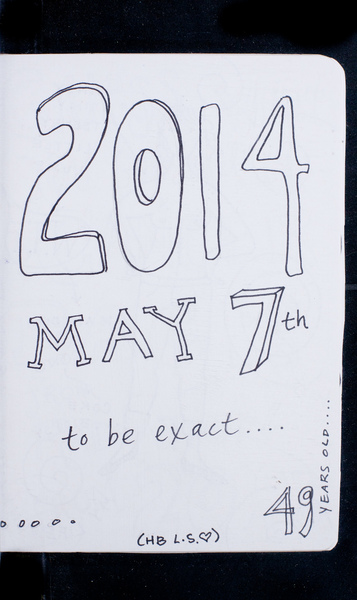 2014
MAY 7th
to be exact....
49 YEARS OLD.....
(HB L.S.♡)